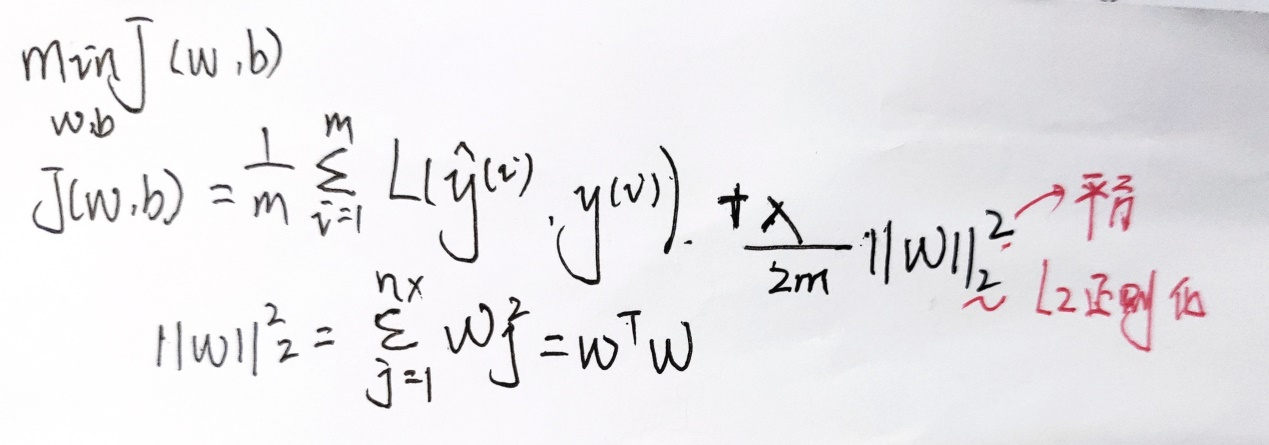 min J(w,b)
w,b
J(w,b) = 1/m Σ_{i=1}^{m} L(ŷ^(i), y^(i)). + λ/2m ||w||_2^2 → 平方
~ L2正则化
||w||_2^2 = Σ_{j=1}^{nx} w_j^2 = w^T w